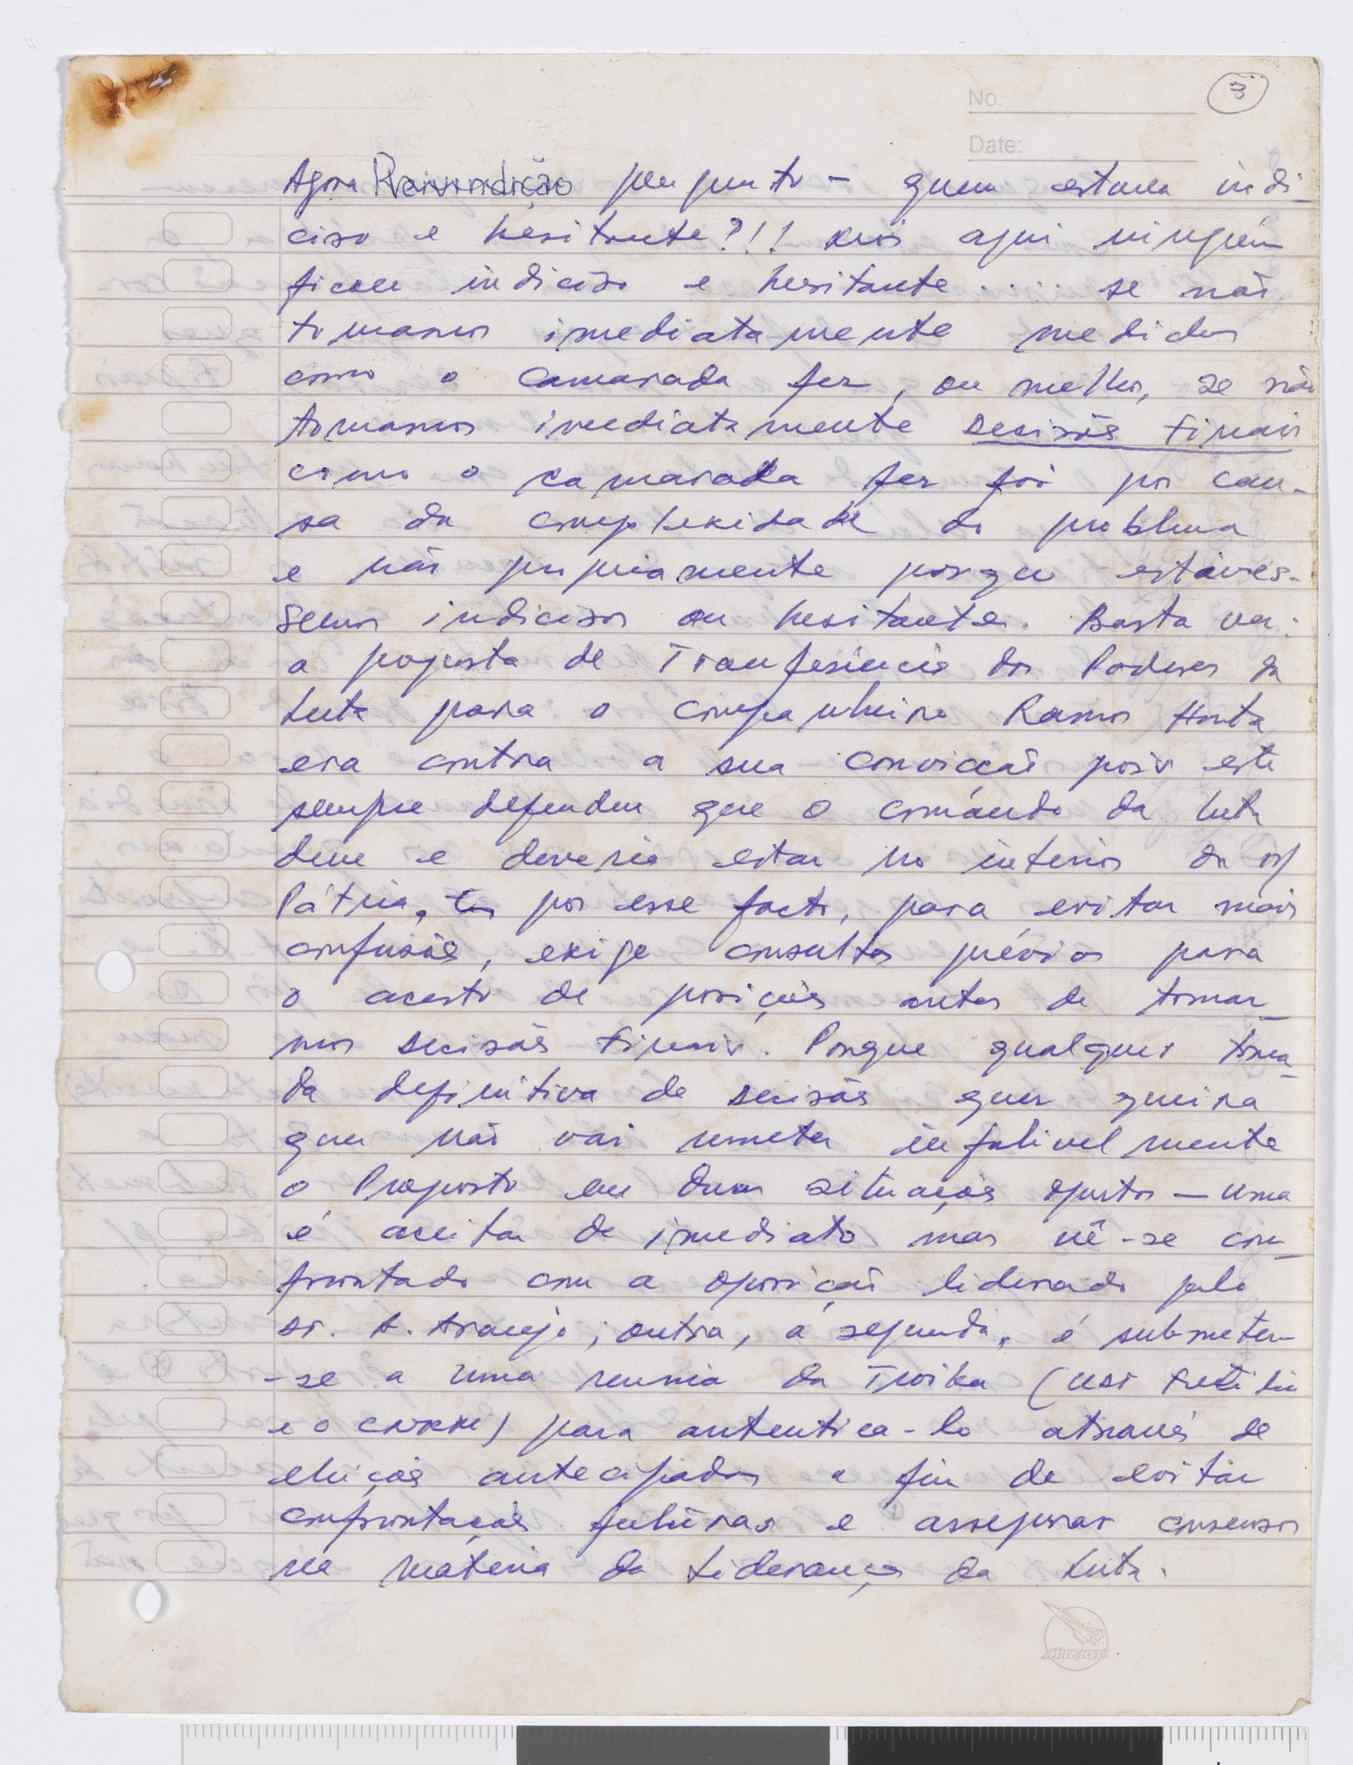 No. 3
Date:
Agora Reivindição pergunto — quem estava indi-
ciso e hesitante?!! Nós aqui ninguém
ficou indiciso e hesitante .... se não
tomamos imediatamente medidas
como o camarada fez, ou melhor, se não
tomamos imediatamente decisões finais
como o camarada fez foi por cau-
sa da complexidade do problema
e não propriamente porque estives-
semos indicisos ou hesitantes. Basta ver:
a proposta de Tranferência dos Poderes da
Luta para o companheiro Ramos Horta
era contra a sua convicção pois este
sempre defendeu que o comando da luta
deve e deveria estar no interior da
Pátria, por esse facto, para evitar mais
confusões, exige consultas prévias para
o acerto de posições antes de tomar-
mos decisões finais. Porque qualquer toma-
da definitiva de decisões quer queira
quer não vai remeter infalivelmente
o Proposto em duas situações opostas — uma
é aceitar de imediato mas vê-se con-
frontado com a oposição liderada pelo
sr. A. Araujo; outra, a segunda, é submeter-
-se a uma reunia da Troika (UDT Fretilin
e o CNRM) para autentica-lo através de
eleições antecipadas a fim de evitar
confrontações futuras e assegurar consensos
na matéria da Liderança da Luta.